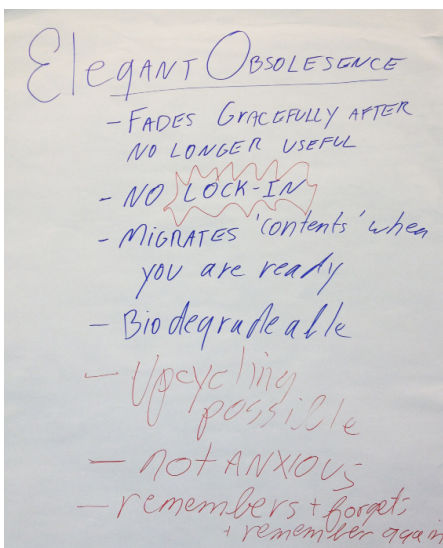 Elegant Obsolesence
- Fades Gracefully after
no longer useful
- No Lock-in
- Migrates 'contents' when
you are ready
- Biodegradeable
- Upcycling
possible
- not ANXIOUS
- remembers + forgets
+ remember again